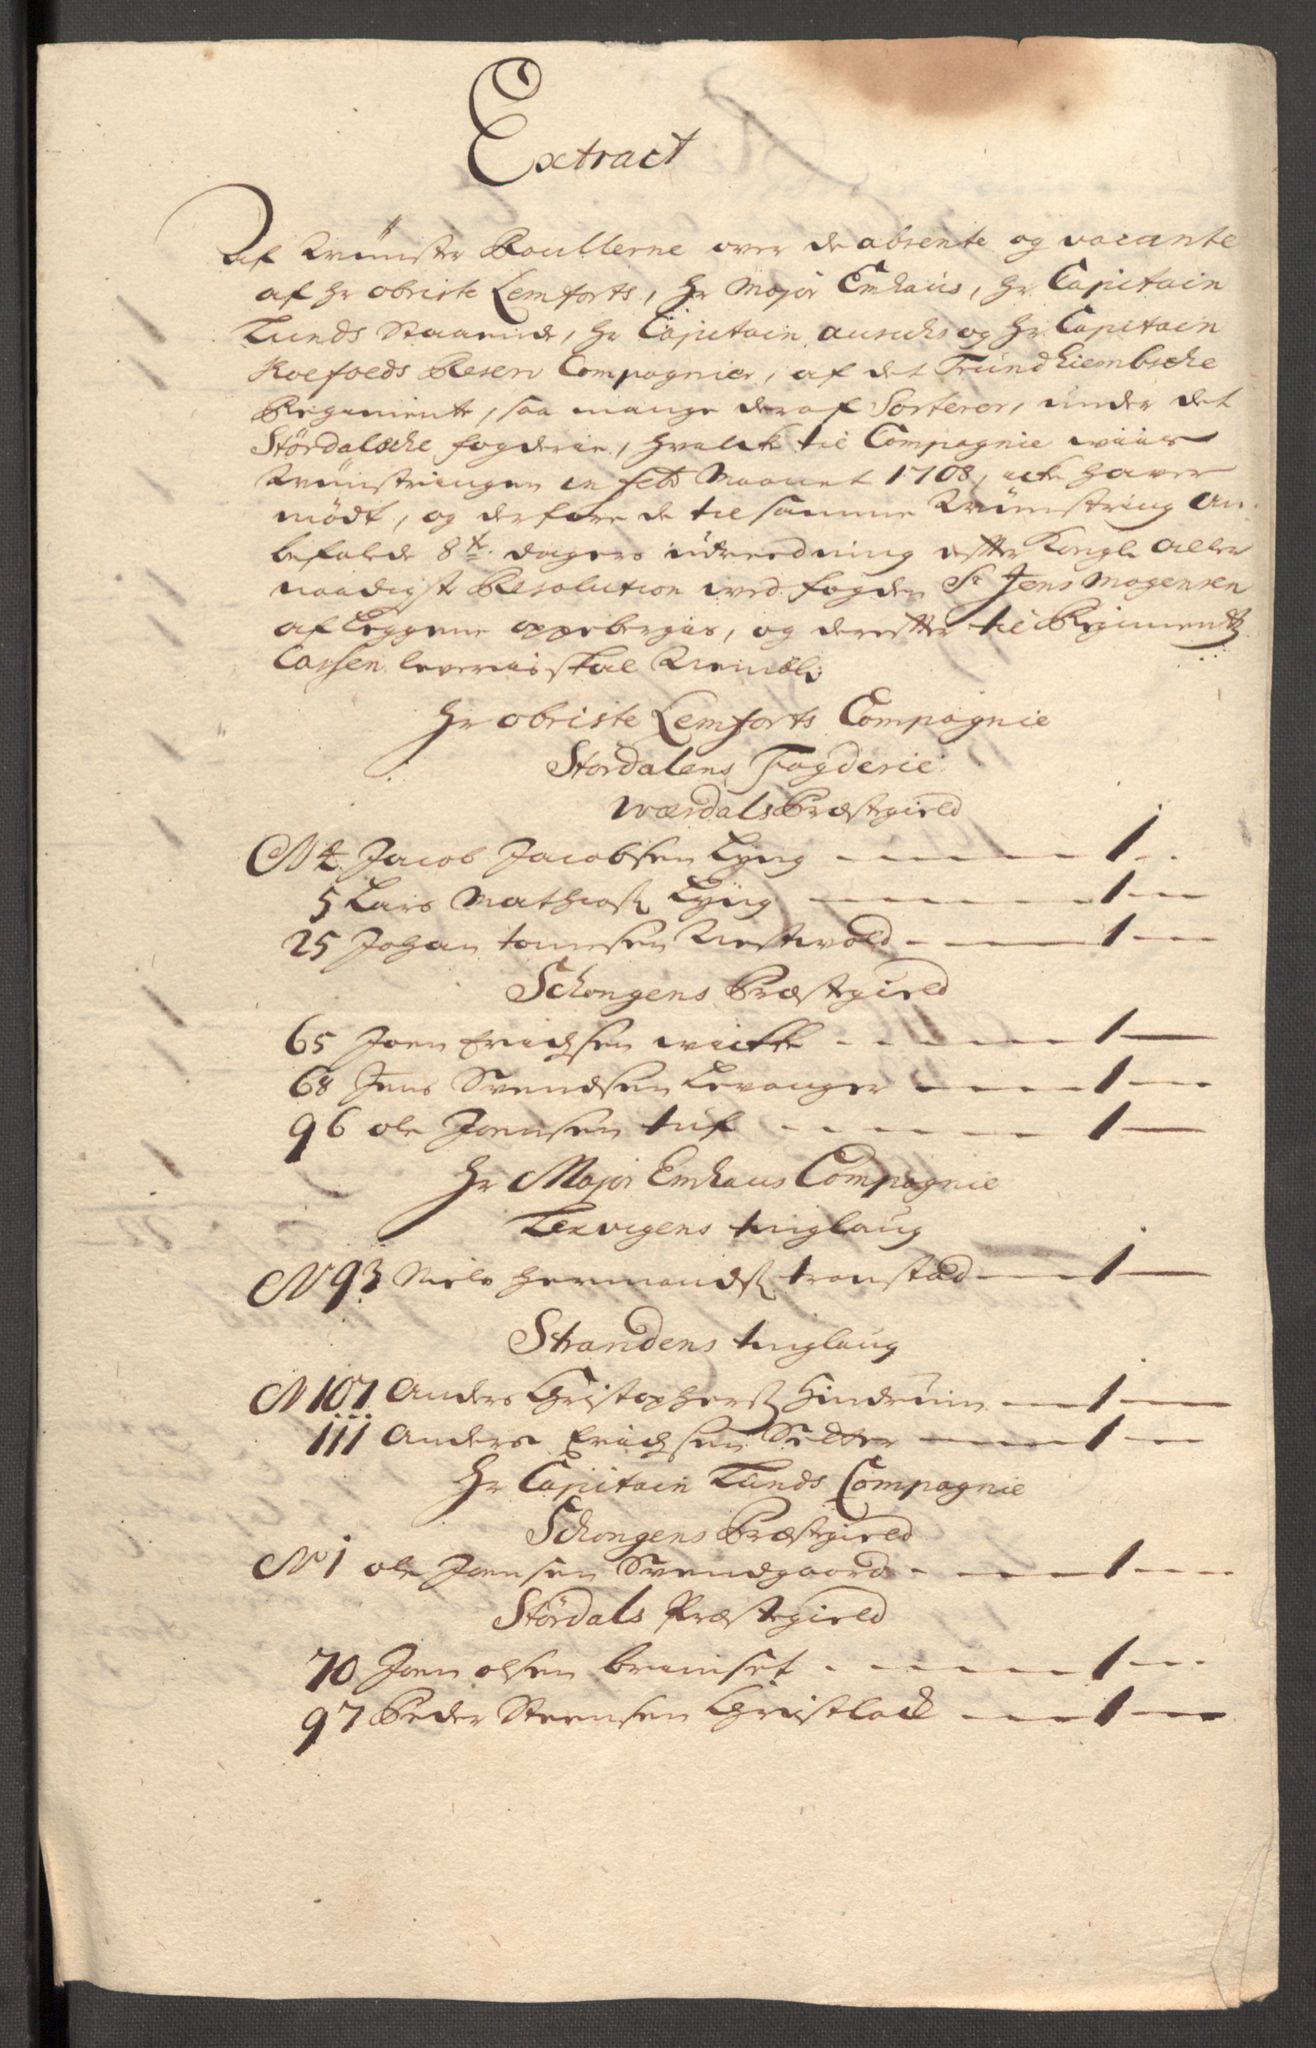 Extract
Af Mynster Roullerne over de absente og vacante
af Hr obriste Lemforts, Hr Major Emhaus, Hr Capitain
Lunds Staaende, Hr Capitain ausuchs og Hr Capitain
Koefoeds Reserv Compagnier, af det Trundhiembsche
Regimente, saa mange deraf Sorterer, under det
Stördalsche fogderie, hvilcke til Compagnie
Mynstringen in feb Maanet 1708, icke haver
mödt, og derfore de til samme Mynstring An-
befalde 8te dagers udreedning efter Kongl. Aller
naadigst Resolution ved fogden Sr Jens Mogensen
af Leggene oppebergis, og derefter til Regimentz
Cassen leveris skal Nemblig
Hr obriste Lemforts Compagnie
Stördalens Fogderie
Wærdals Præstegield
N 4 Jacob Jacobsen Lyng 1
5 Lars Mathias Lyng 1
25 Johan tomesen Nestvold 1
Schongens Præstegield
65 Joen Erichsen wiche 1
68 Jens Svendsen Levanger 1
96 ole Joensen tuf 1
Hr Major Emhaus Compagnie
Lexvigens tinglaug
N 93 Niels Hermands tronstad 1
Strandens tinglaug
N 107 Anders Christophers Hindrum 1
111 Anders Erichsen Setter 1
Hr Capitain Lunds Compagnie
Schongens Præstegield
No 1 ole Joensen Svendgaard 1
Stördals Præstegield
70 Joen olsen bremset 1
97 Peder Steensen Christlock 1